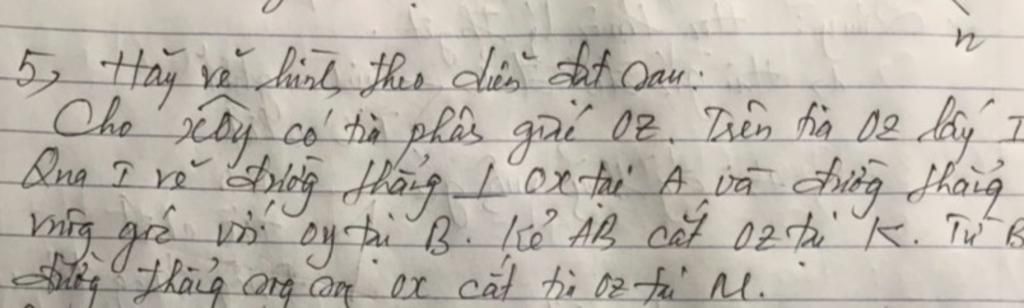 n
5, Hãy vẽ hình theo diễn đạt sau:
Cho xÔy có tia phân giác Oz. Trên tia Oz lấy I
Qua I vẽ đường thẳng ⊥ Ox tại A và đường thẳng
vuông góc với Oy tại B. Kẻ AB cắt Oz tại K. Từ B
đường thẳng song song Ox cắt tia Oz tại M.